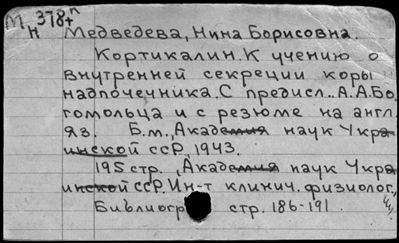 М 378+к
н Медведева, Нина Борисовна.
Кортикалин. К учению о
внутренней секреции коры
надпочечника. С предисл.. А.А. Бо,
гомольца и с резюме на англ.
яз. Б.м., Академия наук Укра
инской ССР, 1943.
195 стр. (Академия наук Укра
инской ССР. Ин-т клинич. физиолог.,
Библиогр стр. 186-191.